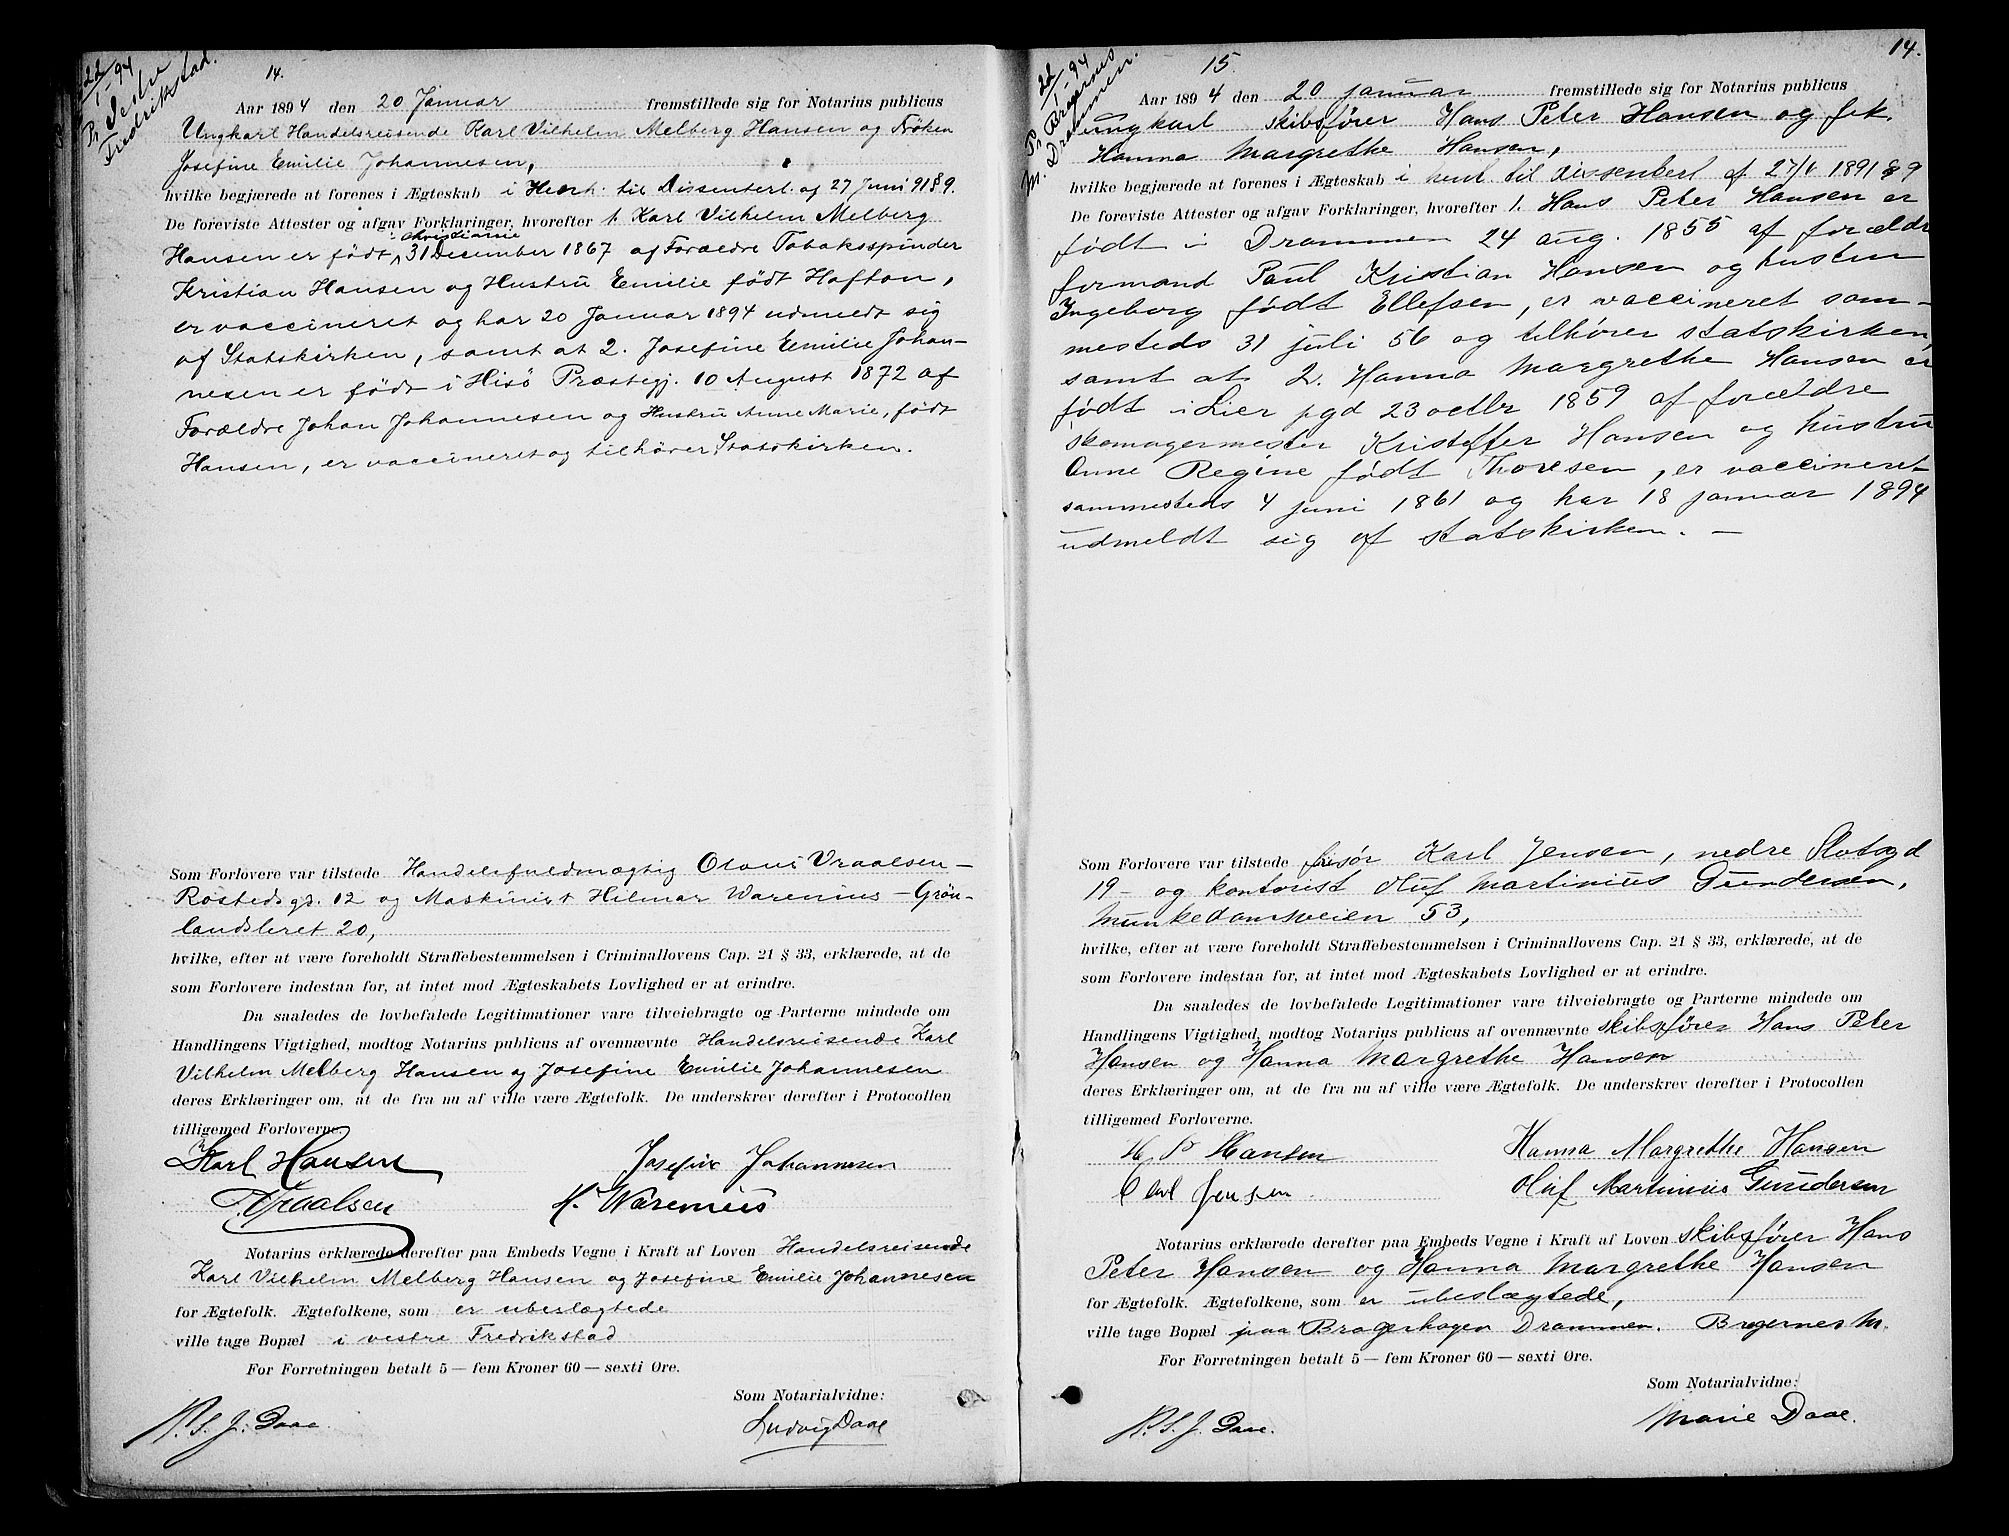 22/1-94
Pr. Vestre
Fredrikstad.
14.
Aar 1894 den 20 Januar fremstillede sig for Notarius publicus
Ungkarl Handelsreisende Karl Vilhelm Melberg Hansen og Frøken
Josefine Emilie Johannesen,
hvilke begjærede at forenes i Ægteskab i Henh. til Dissenterl. af 27 Juni 91 § 9.
De foreviste Attester og afgav Forklaringer, hvorefter 1. Karl Vilhelm Melberg
i Christiania
Hansen er født 31 December 1867 af Forældre Tobaksspinder
Kristian Hansen og Hustru Emilie født Hafton,
er vaccineret og har 20 Januar 1894 udmeldt sig
af Statskirken, samt at 2. Josefine Emilie Johan-
nesen er født i Hisö Præstegj. 10 August 1872 af
Forældre Johan Johannesen og Hustru Anne Marie, født
Hansen, er vaccineret og tilhører Statskirken.
Som Forlovere var tilstede Handelsfuldmægtig Olaus Vraalsen -
Rostedsgd. 12 og Maskinist Hilmar Warenius - Grøn-
landsleret 20,
hvilke, efter at være foreholdt Straffebestemmelsen i Criminallovens Cap. 21 § 33, erklærede, at de
som Forlovere indestaa for, at intet mod Ægteskabets Lovlighed er at erindre.
Da saaledes de lovbefalede Legitimationer vare tilveiebragte og Parterne mindede om
Handlingens Vigtighed, modtog Notarius publicus af ovennævnte Handelsreisende Karl
Vilhelm Melberg Hansen og Josefine Emilie Johannesen
deres Erklæringer om, at de fra nu af ville være Ægtefolk. De underskrev derefter i Protocollen
tilligemed Forloverne.
Karl Hansen Josefine Johannesen
Vraalsen H. Warenius
Notarius erklærede derefter paa Embeds Vegne i Kraft af Loven Handelsreisende
Karl Vilhelm Melberg Hansen og Josefine Emilie Johannesen
for Ægtefolk. Ægtefolkene, som er ubeslægtede
ville tage Bopæl i vestre Fredrikstad
For Forretningen betalt 5 — fem Kroner 60 — sexti Øre.
Som Notarialvidne:
N. S. J. Daae Ludvig Daae
14.
22/1-94
Pr. Bragernes
M. Drammen.
15.
Aar 1894 den 20 januar fremstillede sig for Notarius publicus
ungkarl skibsfører Hans Peter Hansen og frk.
Hanna Margrethe Hansen,
hvilke begjærede at forenes i Ægteskab i henh. til dissenterl af 27/6 1891 § 9
De foreviste Attester og afgav Forklaringer, hvorefter 1. Hans Peter Hansen er
født i Drammen 24 aug. 1855 af forældre
formand Paul Kristian Hansen og hustru
Ingeborg født Ellefsen, er vaccineret sam-
mesteds 31 juli 56 og tilhører statskirken,
samt at 2. Hanna Margrethe Hansen er
født i Lier pgd 23 octbr 1859 af forældre
skomagermester Kristoffer Hansen og hustru
Anne Regine født Thoresen, er vaccineret
sammesteds 4 juni 1861 og har 18 januar 1894
udmeldt sig af statskirken. -
Som Forlovere var tilstede frisør Karl Jensen, nedre Slotsgd
19 - og kontorist Oluf Martinius Gundersen,
Munkedamsveien 53,
hvilke, efter at være foreholdt Straffebestemmelsen i Criminallovens Cap. 21 § 33, erklærede, at de
som Forlovere indestaa for, at intet mod Ægteskabets Lovlighed er at erindre.
Da saaledes de lovbefalede Legitimationer vare tilveiebragte og Parterne mindede om
Handlingens Vigtighed, modtog Notarius publicus af ovennævnte skibsfører Hans Peter
Hansen og Hanna Margrethe Hansen
deres Erklæringer om, at de fra nu af ville være Ægtefolk. De underskrev derefter i Protocollen
tilligemed Forloverne.
H. P. Hansen Hanna Margrethe Hansen
Carl Jensen Oluf Martinius Gundersen
Notarius erklærede derefter paa Embeds Vegne i Kraft af Loven skibsfører Hans
Peter Hansen og Hanna Margrethe Hansen
for Ægtefolk. Ægtefolkene, som er ubeslægtede,
ville tage Bopæl paa Bragerhagen Drammen. Bragernes M.
For Forretningen betalt 5 — fem Kroner 60 — sexti Øre.
Som Notarialvidne:
N. S. J. Daae. Marie Daae.